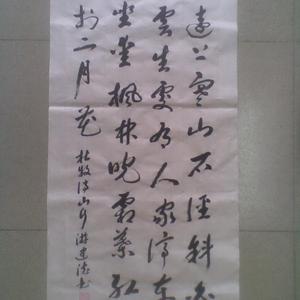 遠上寒山石徑斜白
雲生處有人家停車
坐愛楓林晚霜葉紅
於二月花
杜牧诗山行 游建